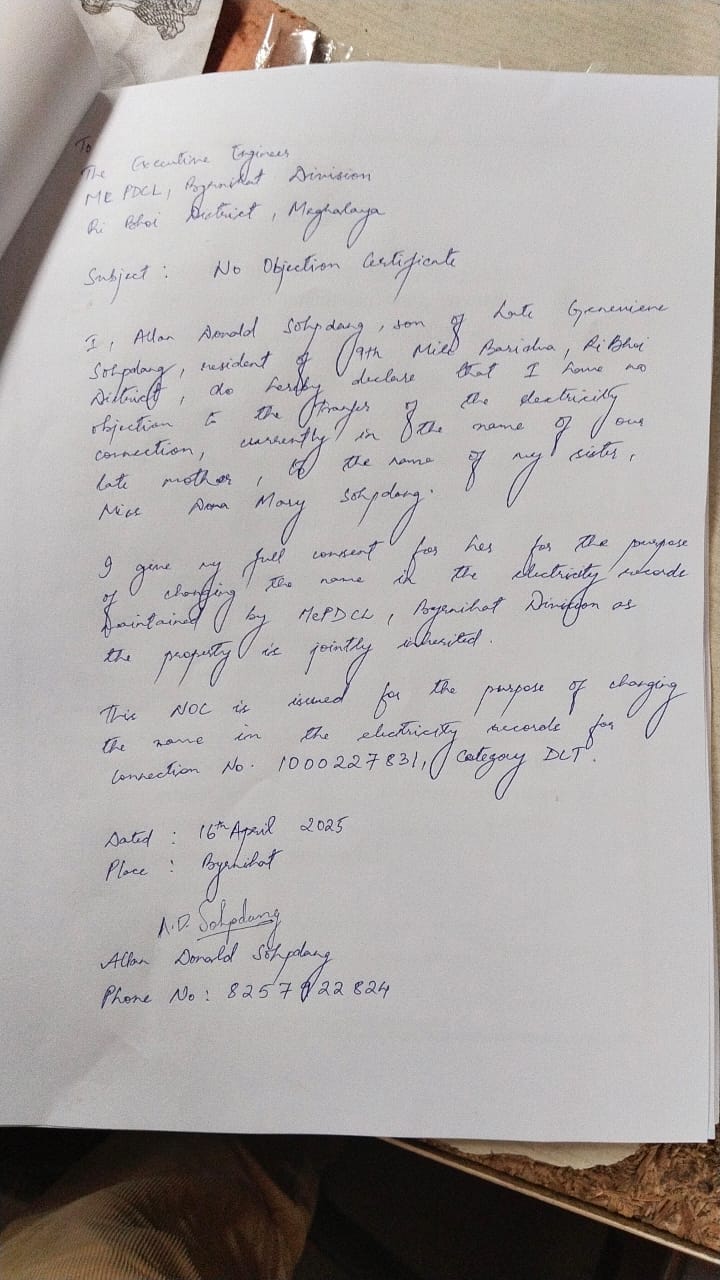 To
The Executive Engineer
MePDCL, Byrnihat Division
Ri Bhoi District, Meghalaya
Subject : No Objection Certificate
I, Allan Donald Sohpdang, son of Late Genevieve
Sohpdang, resident of 9th Mile Baridua, Ri Bhoi
District, do hereby declare that I have no
objection to the transfer of the electricity
connection, currently in the name of our
late mother, to the name of my sister,
Miss Dona Mary Sohpdang.
I give my full consent for her for the purpose
of changing the name in the electricity records
maintained by MePDCL, Byrnihat Division as
the property is jointly inherited.
This NOC is issued for the purpose of changing
the name in the electricity records for
Connection No. 1000227831, Category DLT.
Dated : 16th April 2025
Place : Byrnihat
A.D. Sohpdang
Allan Donald Sohpdang
Phone No : 8257 22824